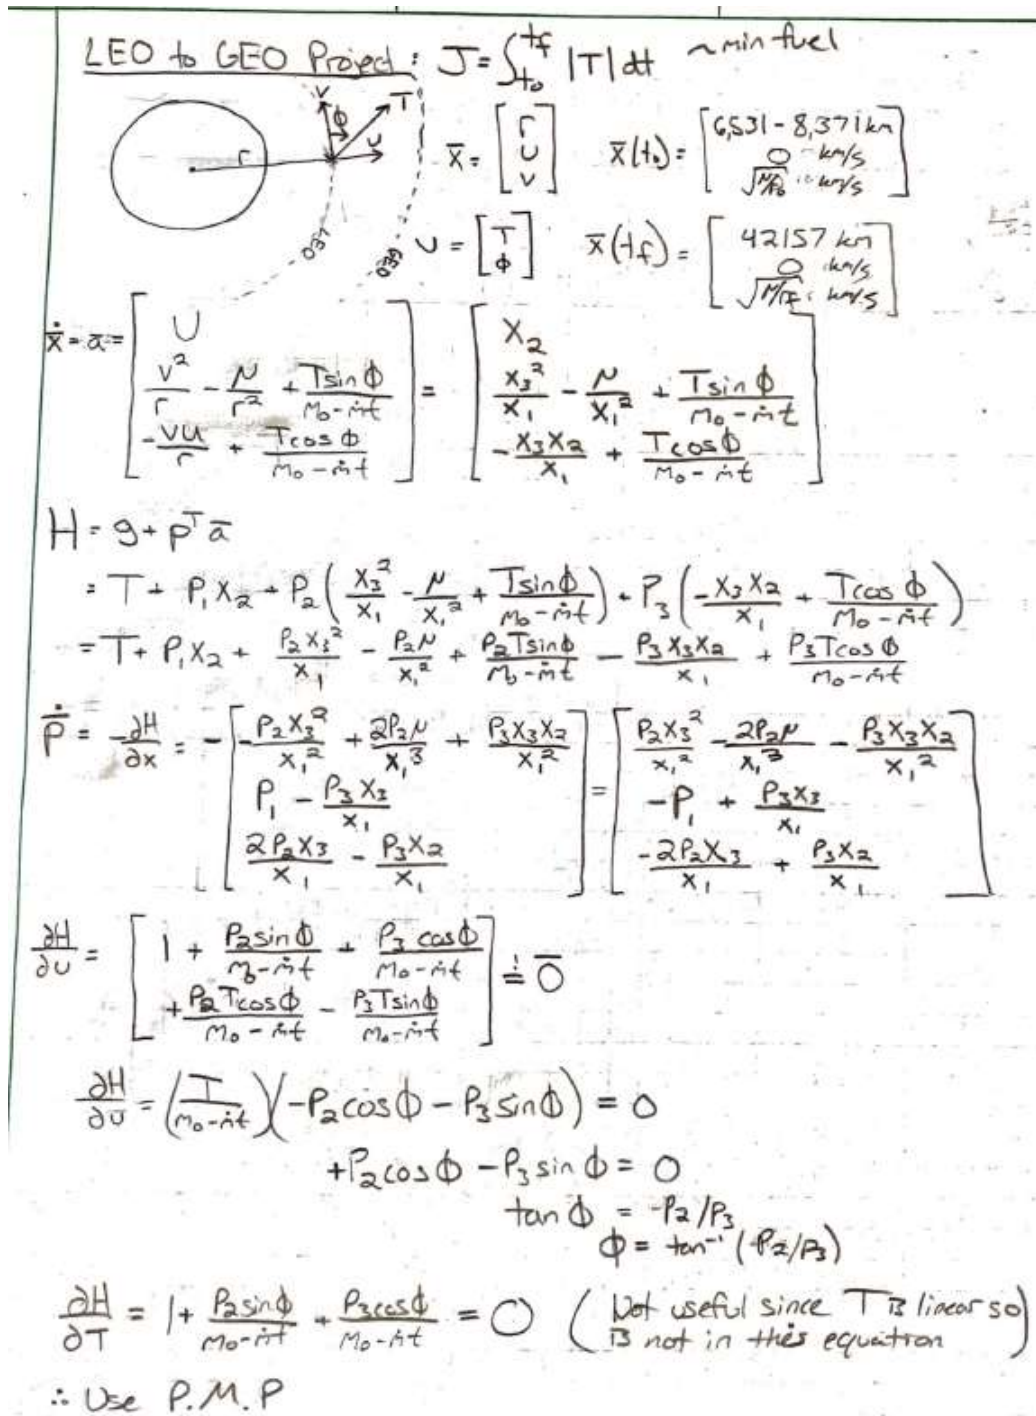 LEO to GEO Project: J = ∫_{t_0}^{t_f} |T| dt ~ min fuel
v φ T
r u
x̄ = [r; u; v] x̄(t_0) = [6,531 - 8,371 km; 0 km/s; √(μ/r_0) km/s]
LEO GEO
U = [T; φ] x̄(t_f) = [42157 km; 0 km/s; √(μ/r_f) km/s]
ẋ̄ = ā = [U; v²/r - μ/r² + T sin φ/(m_0 - ṁt); -vu/r + T cos φ/(m_0 - ṁt)] = [x_2; x_3²/x_1 - μ/x_1² + T sin φ/(m_0 - ṁt); -x_3x_2/x_1 + T cos φ/(m_0 - ṁt)]
H = g + p^T ā
= T + P_1x_2 + P_2(x_3²/x_1 - μ/x_1² + T sin φ/(m_0 - ṁt)) + P_3(-x_3x_2/x_1 + T cos φ/(m_0 - ṁt))
= T + P_1x_2 + P_2x_3²/x_1 - P_2μ/x_1² + P_2T sin φ/(m_0 - ṁt) - P_3x_3x_2/x_1 + P_3T cos φ/(m_0 - ṁt)
Ṗ̄ = -∂H/∂x = -[-P_2x_3²/x_1² + 2P_2μ/x_1³ + P_3x_3x_2/x_1²; P_1 - P_3x_3/x_1; 2P_2x_3/x_1 - P_3x_2/x_1] = [P_2x_3²/x_1² - 2P_2μ/x_1³ - P_3x_3x_2/x_1²; -P_1 + P_3x_3/x_1; -2P_2x_3/x_1 + P_3x_2/x_1]
∂H/∂u = [1 + P_2 sin φ/(m_0 - ṁt) + P_3 cos φ/(m_0 - ṁt); +P_2T cos φ/(m_0 - ṁt) - P_3T sin φ/(m_0 - ṁt)] != 0̄
∂H/∂υ = (T/(m_0 - ṁt))(-P_2 cos φ - P_3 sin φ) = 0
+P_2 cos φ - P_3 sin φ = 0
tan φ = -P_2/P_3
φ = tan⁻¹(P_2/P_3)
∂H/∂T = 1 + P_2 sin φ/(m_0 - ṁt) + P_3 cos φ/(m_0 - ṁt) = 0 (Not useful since T is linear so
is not in this equation)
∴ Use P.M.P